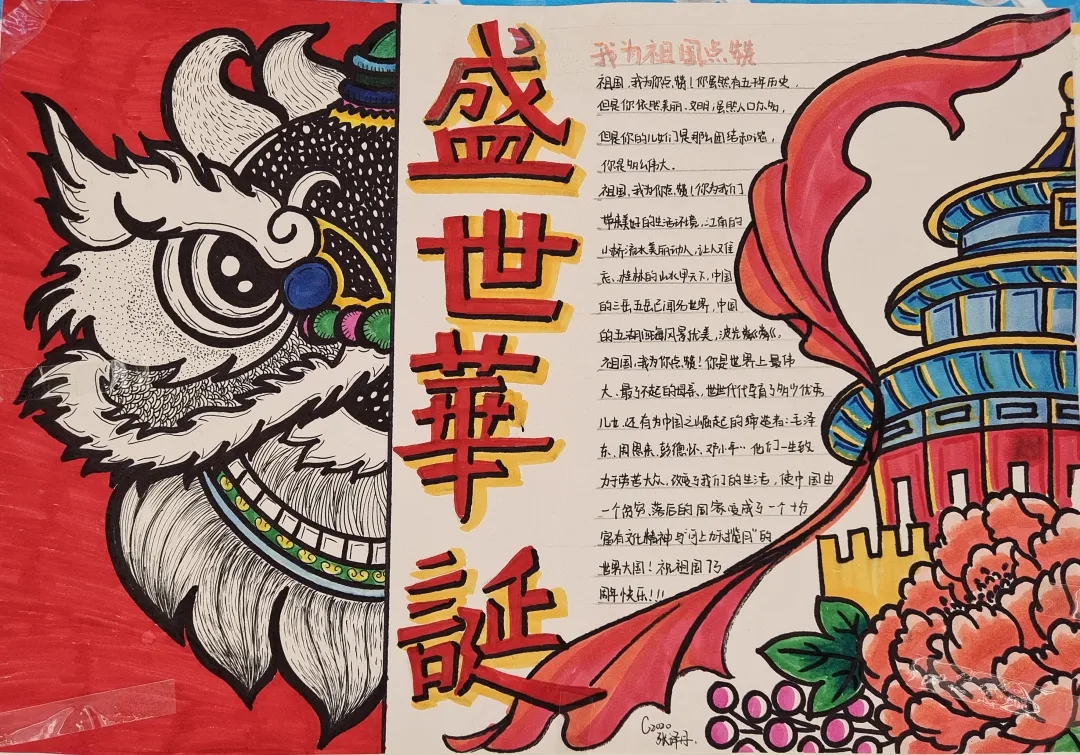 盛世華誕
我为祖国点赞
祖国,我为你点赞!你虽然有五千年历史,
但是你依然美丽、文明,虽然人口众多,
但是你的儿女们是那么团结和谐,
你是多么伟大。
祖国,我为你点赞!你为我们
带来美好的生活环境,江南的
小桥流水美丽动人,让人又难
忘,桂林的山水甲天下,中国
的三山五岳已闻名世界,中国
的五湖四海风景优美,波光粼粼。
祖国,我为你点赞!你是世界上最伟
大、最了不起的母亲,世世代代孕育了多少优秀
儿女,还有为中国之崛起的缔造者:毛泽
东、周恩来、彭德怀、邓小平…他们一生致
力于劳苦大众,改变了我们的生活,使中国由
一个贫穷、落后的国家变成了一个十分
富有文化精神与“可上九天揽月”的
世界大国!祝祖国73
周年快乐!!!
C2020
张泽